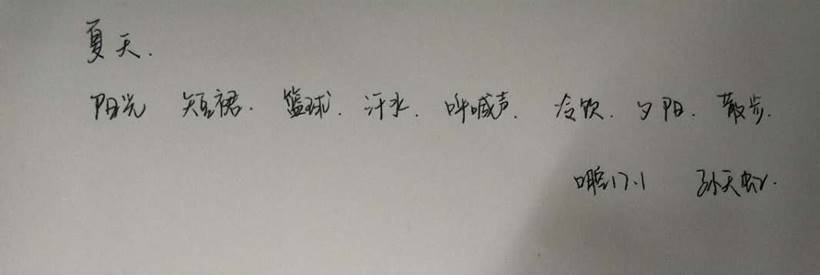 夏天.
阳光 短裙. 篮球. 汗水. 呐喊声. 冷饮. 夕阳. 散步.
17.1 孙天虹.